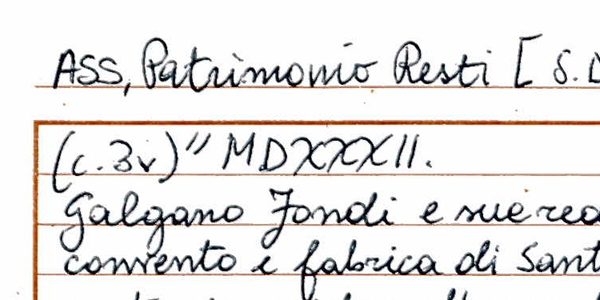 ASS, Patrimonio Resti [ S.D
(c.3v)" MDXXXII.
Galgano Fondi e sue rea
convento e fabrica di Sant